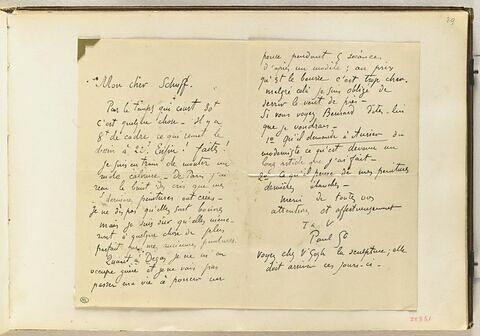 29
Mon cher Schuff.
Par le temps qui court 30f
c'est quelque chose – il y a
8f de cadre ce qui remet le
dessin à 22f. Enfin! faites!
Je suis en train de
une calomnie. De Paris j'ai
reçu le bruit des cris que mes
dernières peintures ont
Je ne dis pas qu'elles sont bonnes
mais je suis sûr qu'elles mènent
sont à quelque chose de plus
parfait que mes anciennes peintures.
Quant à Degas je ne m'en
occupe guère et je ne vais pas
passer ma vie à poncer un
pouce pendant 5 séances
d'après un modèle; au prix
qu'est le beurre c'est trop cher.
malgré cela je suis obligé de
serrer le vent de près –
Si vous voyez Bernard dites-lui
que je voudrais
1º Qu'il demande à Aurier du
moderniste ce qu'est devenu un
long article que j'ai fait –
2º Ce qu'il pense de mes peintures
dernières
Merci de toutes vos
attentions et affectueusement
T à V
Paul Go
Voyez chez V Gogh la sculpture; elle
doit arriver ces jours-ci.